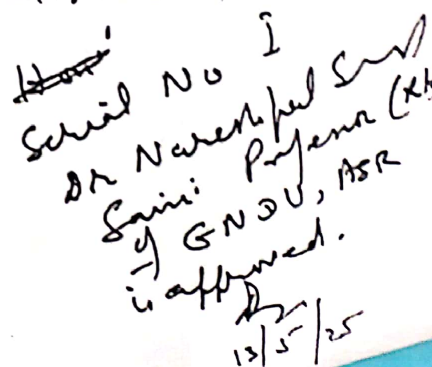 Serial No I
Dr Nareshpal Singh
Saini Professor (R
of GNDU, ASR
is approved.
13/5/25